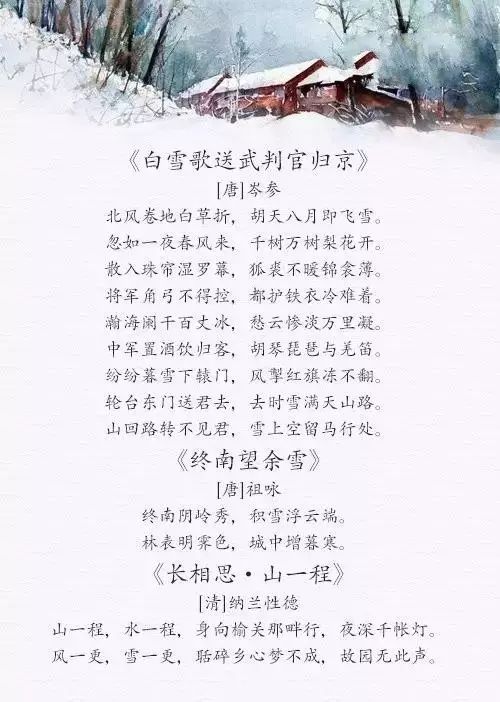 《白雪歌送武判官归京》
[唐]岑参
北风卷地白草折，胡天八月即飞雪。
忽如一夜春风来，千树万树梨花开。
散入珠帘湿罗幕，狐裘不暖锦衾薄。
将军角弓不得控，都护铁衣冷难着。
瀚海阑干百丈冰，愁云惨淡万里凝。
中军置酒饮归客，胡琴琵琶与羌笛。
纷纷暮雪下辕门，风掣红旗冻不翻。
轮台东门送君去，去时雪满天山路。
山回路转不见君，雪上空留马行处。
《终南望余雪》
[唐]祖咏
终南阴岭秀，积雪浮云端。
林表明霁色，城中增暮寒。
《长相思·山一程》
[清]纳兰性德
山一程，水一程，身向榆关那畔行，夜深千帐灯。
风一更，雪一更，聒碎乡心梦不成，故园无此声。